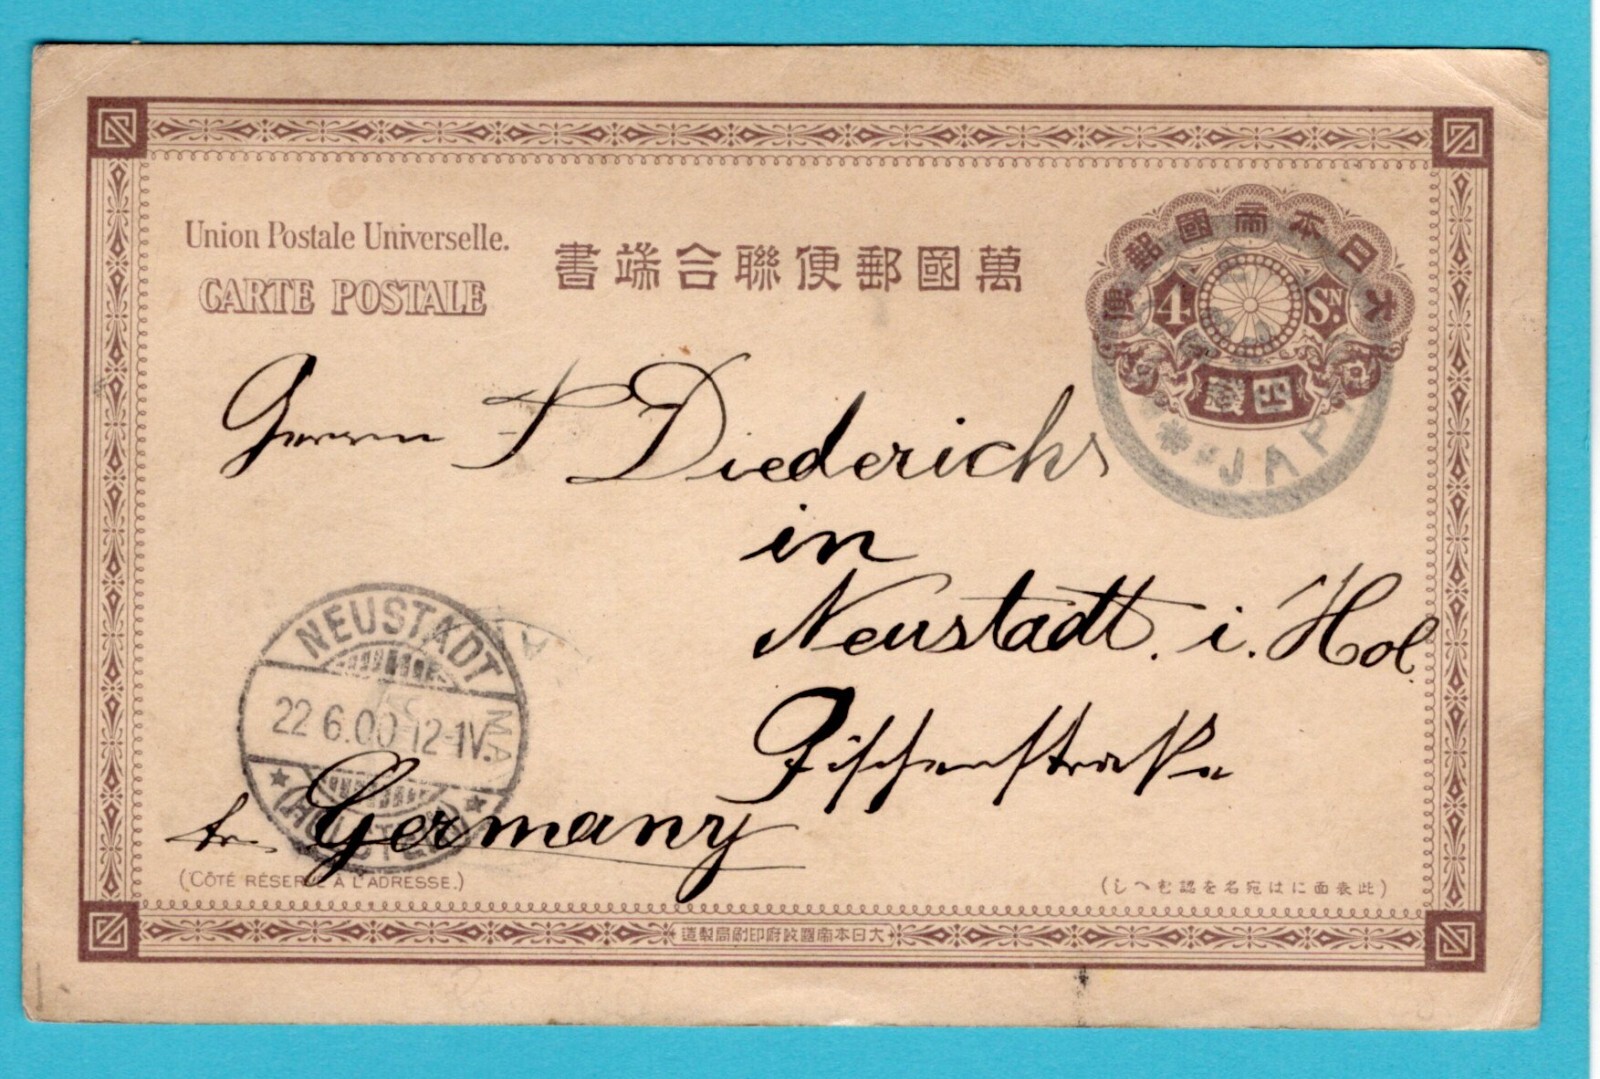 Union Postale Universelle.
CARTE POSTALE
萬國郵便聯合端書
大日本帝國郵便
4 SN.
四錢
JAP
Herrn Diederichs
in
Neustadt. i. Hol.
NEUSTADT
22.6.00 12-1N.
(HOLSTEIN)
Germany
(CÔTÉ RÉSERVÉ À L'ADRESSE.)
(此表面には宛名を認むへし)
大日本帝國政府印刷局製造